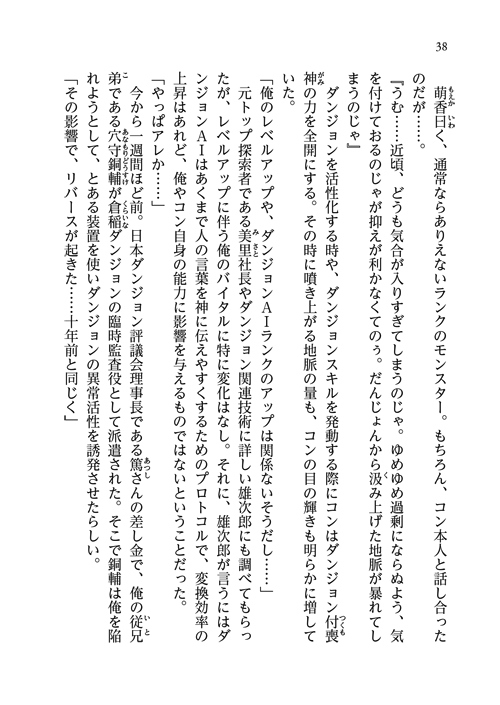 38
萌香曰く、通常ならありえないランクのモンスター。もちろん、コン本人と話し合った
のだが……。
『うむ……近頃、どうも気合が入りすぎてしまうのじゃ。ゆめゆめ過剰にならぬよう、気
を付けておるのじゃが抑えが利かなくてのぅ。だんじょんから汲み上げた地脈が暴れてし
まうのじゃ』
ダンジョンを活性化する時や、ダンジョンスキルを発動する際にコンはダンジョン付喪
神の力を全開にする。その時に噴き上がる地脈の量も、コンの目の輝きも明らかに増して
いた。
「俺のレベルアップや、ダンジョンＡＩランクのアップは関係ないそうだし……」
元トップ探索者である美里社長やダンジョン関連技術に詳しい雄次郎にも調べてもらっ
たが、レベルアップに伴う俺のバイタルに特に変化はなし。それに、雄次郎が言うにはダ
ンジョンＡＩはあくまで人の言葉を神に伝えやすくするためのプロトコルで、変換効率の
上昇はあれど、俺やコン自身の能力に影響を与えるものではないということだった。
「やっぱアレか……」
今から一週間ほど前。日本ダンジョン評議会理事長である篤さんの差し金で、俺の従兄
弟である穴守銅輔が倉稲ダンジョンの臨時監査役として派遣された。そこで銅輔は俺を陥
れようとして、とある装置を使いダンジョンの異常活性を誘発させたらしい。
「その影響で、リバースが起きた……十年前と同じく」